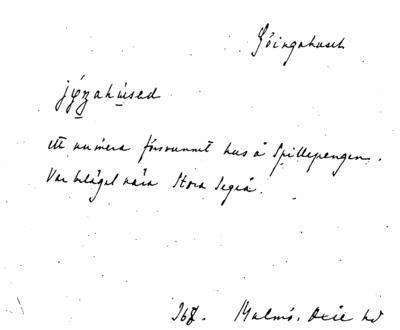 Göingahuset
ett numera försvunnet hus å Spillepengen.
Var beläget nära Stora Segeå.
Ibf. Malmö, Oxie hd